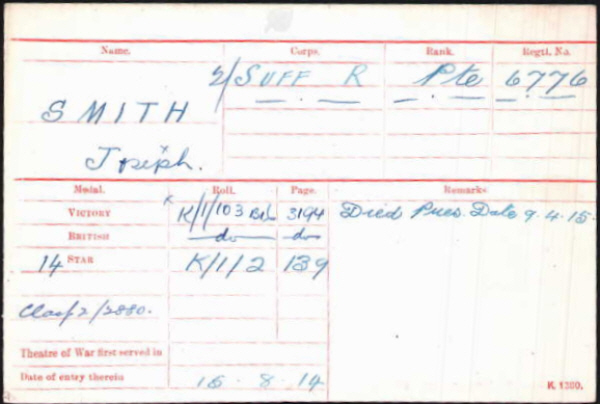 Name. Corps. Rank. Regtl. No.
2/SUFF R Pte 6776
SMITH
Joseph.
Medal. Roll. Page. Remarks
VICTORY K/1/103 B2 3194 Died Pres. Date 9.4.15.
BRITISH do do
14 STAR K/1/2 139
Clasp 2/2880.
Theatre of War first served in
Date of entry therein 15. 8. 14
K. 1380.